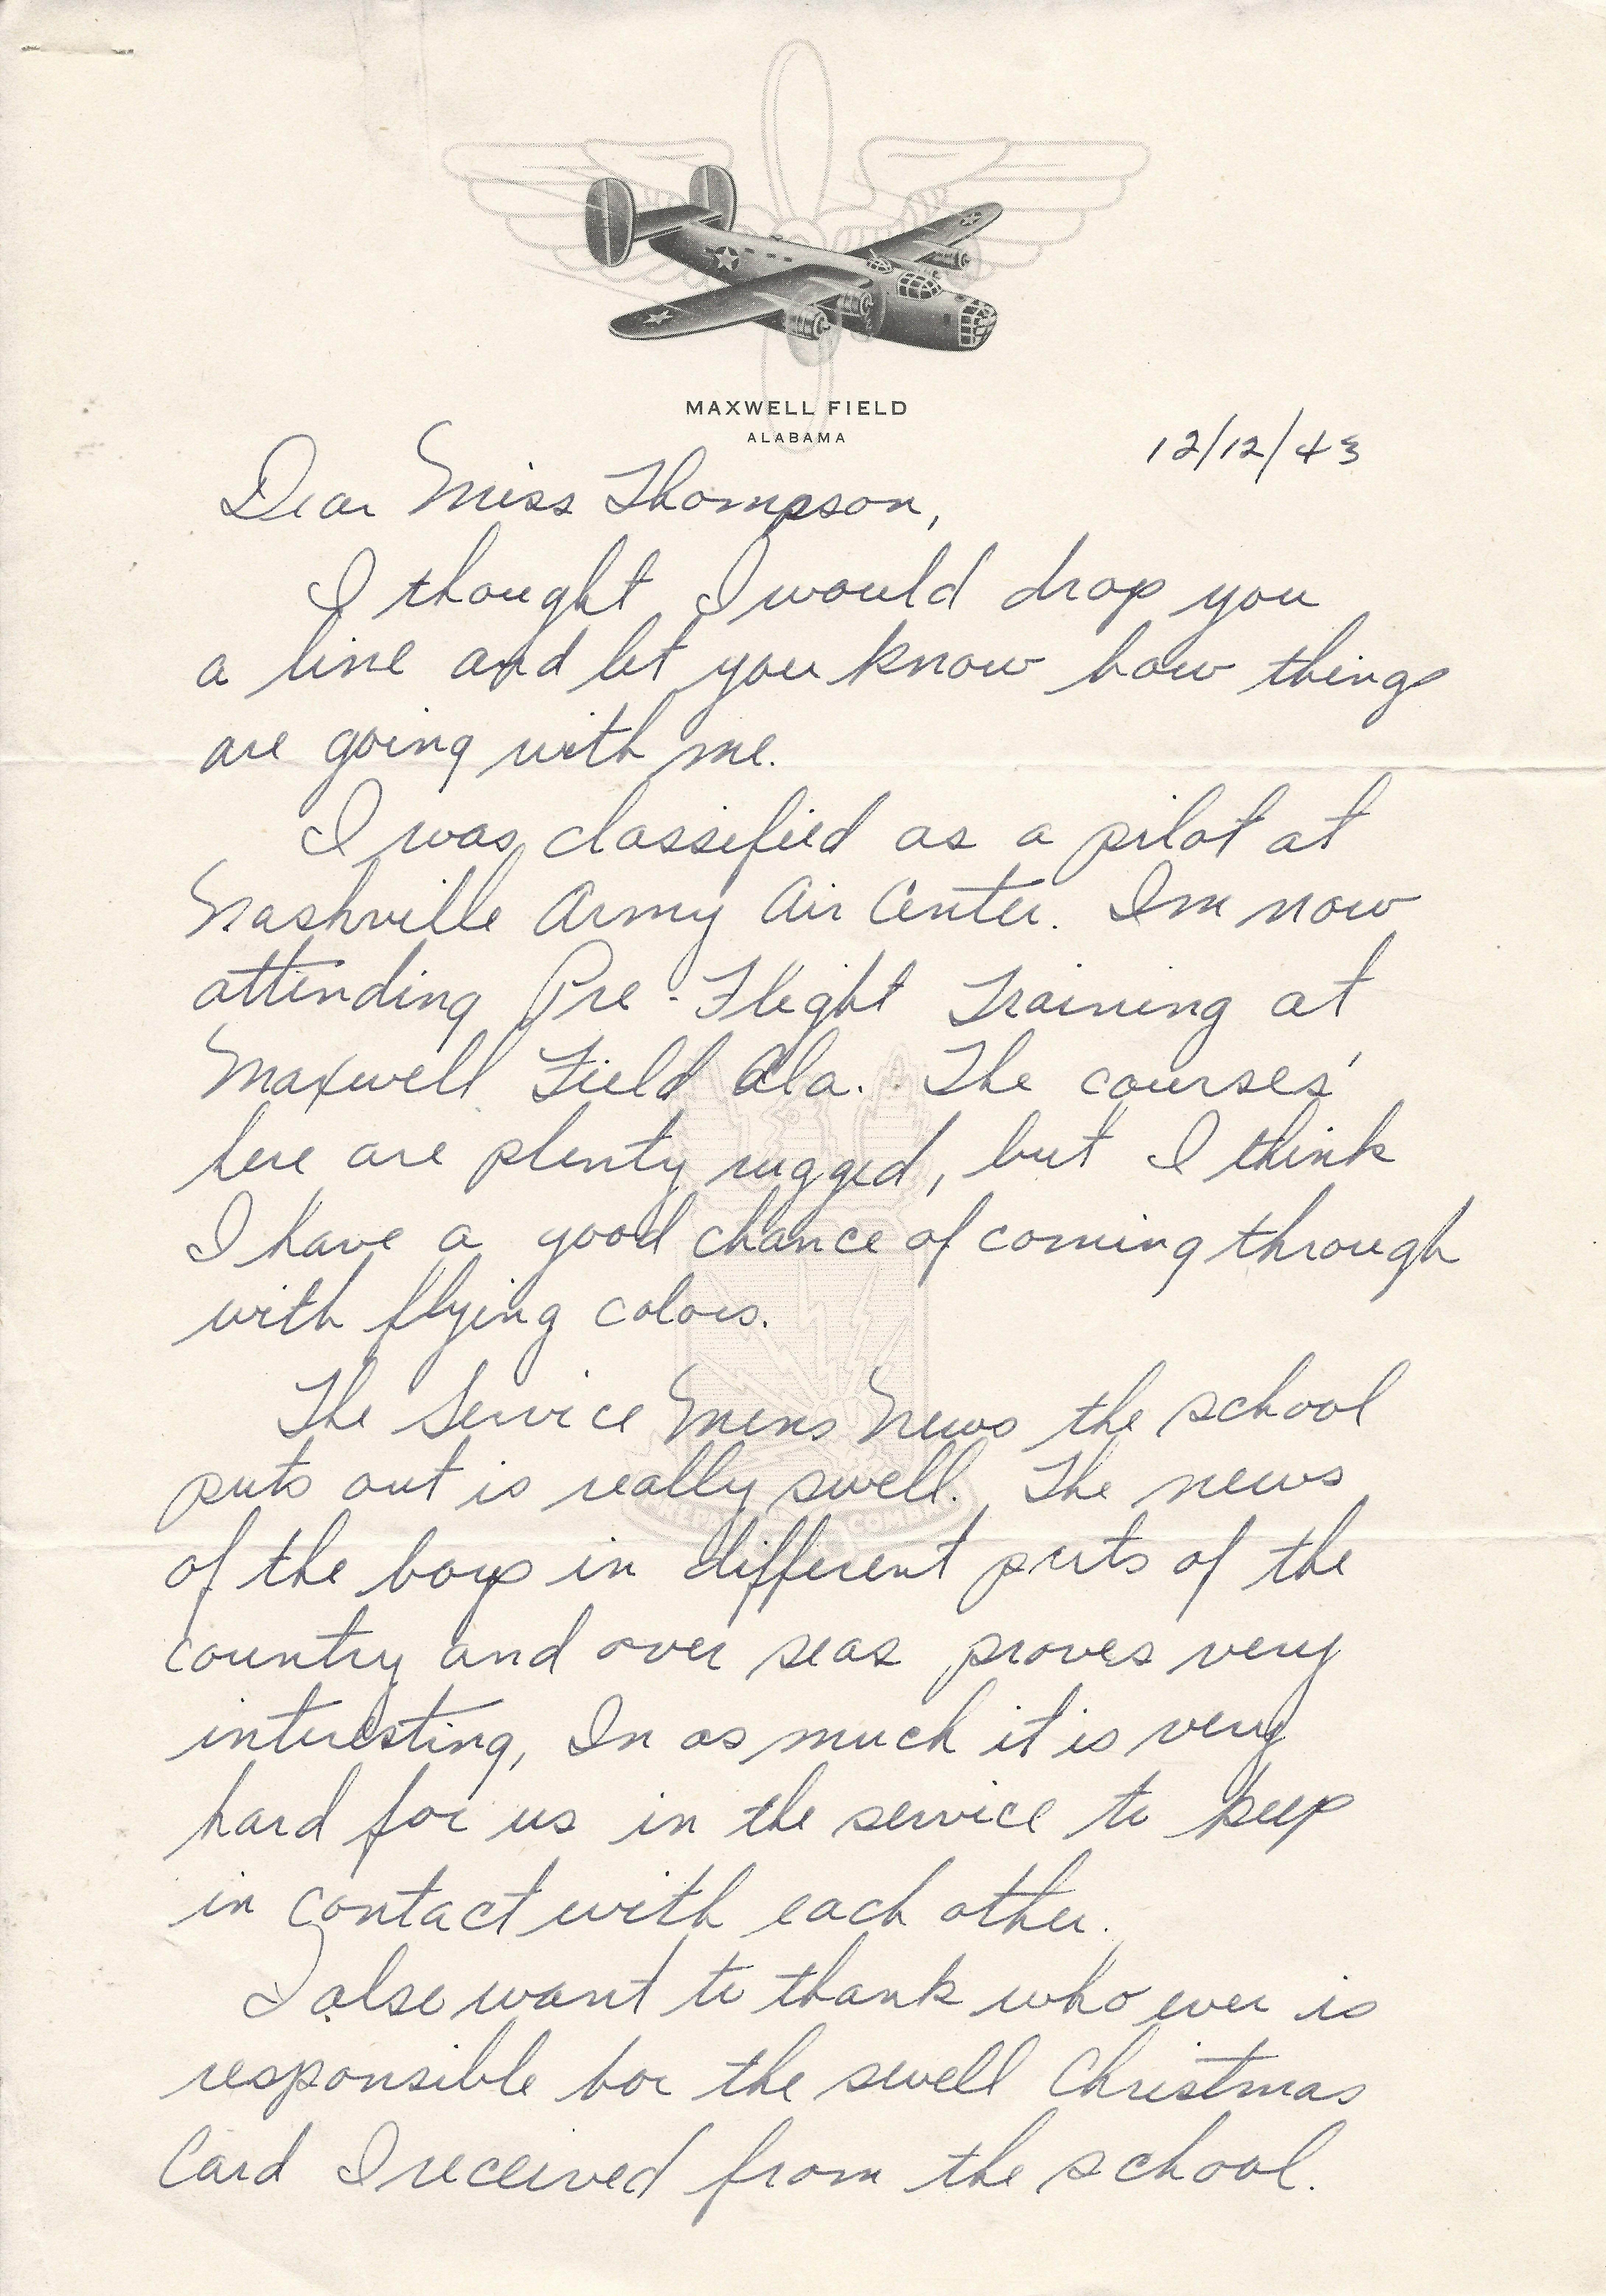 MAXWELL FIELD
ALABAMA
12/12/43
Dear Miss Thompson,
I thought I would drop you
a line and let you know how things
are going with me.
I was classified as a pilot at
Nashville Army Air Center. Im now
attending Pre-Flight Training at
Maxwell Field Ala. The courses'
here are plenty rugged, but I think
I have a good chance of coming through
with flying colors.
The Service Mens News the school
puts out is really swell. The news
of the boys in different parts of the
country and over seas proves very
interesting, In as much it is very
hard for us in the service to keep
in contact with each other.
I also want to thank who ever is
responsible for the swell Christmas
Card I received from the school.